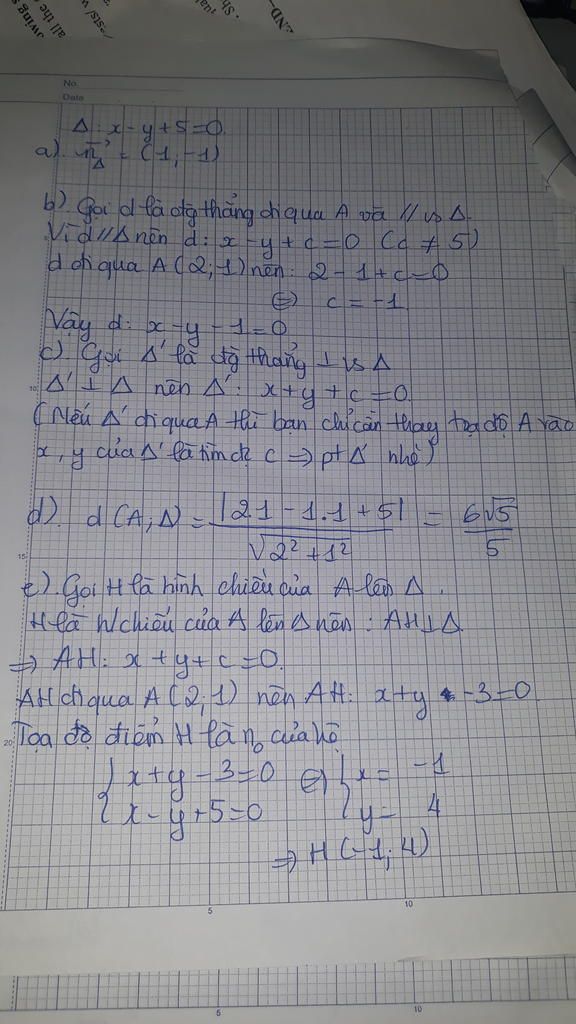 No.
Date
Δ: x - y + 5 = 0.
a). n⃗_Δ = (1, -1)
b) Gọi d là đg thẳng đi qua A và // vs Δ.
Vì d // Δ nên d: x - y + c = 0 (c ≠ 5)
d đi qua A (2; 1) nên: 2 - 1 + c = 0
⇔ c = -1
Vậy d: x - y - 1 = 0
c) Gọi Δ' là đg thẳng ⊥ vs Δ
10 Δ' ⊥ Δ nên Δ': x + y + c = 0.
(Nếu Δ' đi qua A thì bạn chỉ cần thay tọa độ A vào
x, y của Δ' là tìm đc c ⇒ pt Δ' nhé)
d). d (A, Δ) = |2.1 - 1.1 + 5| / √(2² + 1²) = 6√5 / 5
15
e). Gọi H là hình chiếu của A lên Δ.
H là h/chiếu của A lên Δ nên: AH ⊥ Δ
⇒ AH: x + y + c = 0.
AH đi qua A (2; 1) nên AH: x + y - 3 = 0
20 Tọa độ điểm H là no của hệ
{ x + y - 3 = 0 ⇔ { x = -1
{ x - y + 5 = 0 { y = 4
⇒ H (-1; 4)
5 10
5 10